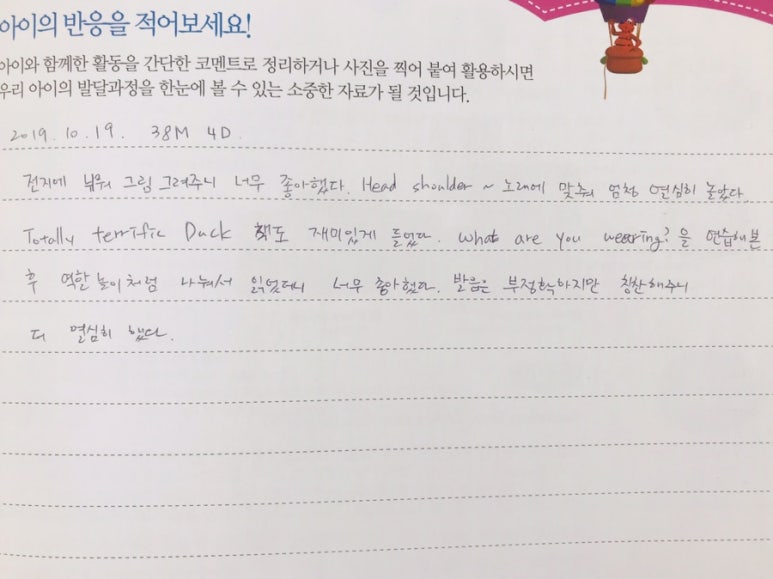 아이의 반응을 적어보세요!
아이와 함께한 활동을 간단한 코멘트로 정리하거나 사진을 찍어 붙여 활용하시면
우리 아이의 발달과정을 한눈에 볼 수 있는 소중한 자료가 될 것입니다.
2019. 10. 19. 38M 4D.
전지에 눕혀 그림 그려주니 너무 좋아했다. Head shoulder ~ 노래에 맞춰 엄청 열심히 놀았다.
Totally terrific Duck 책도 재미있게 들었다. What are you wearing?을 연습해본
후 역할놀이처럼 나눠서 읽었더니 너무 좋아했다. 발음은 부정확하지만 칭찬해주니
더 열심히 했다.